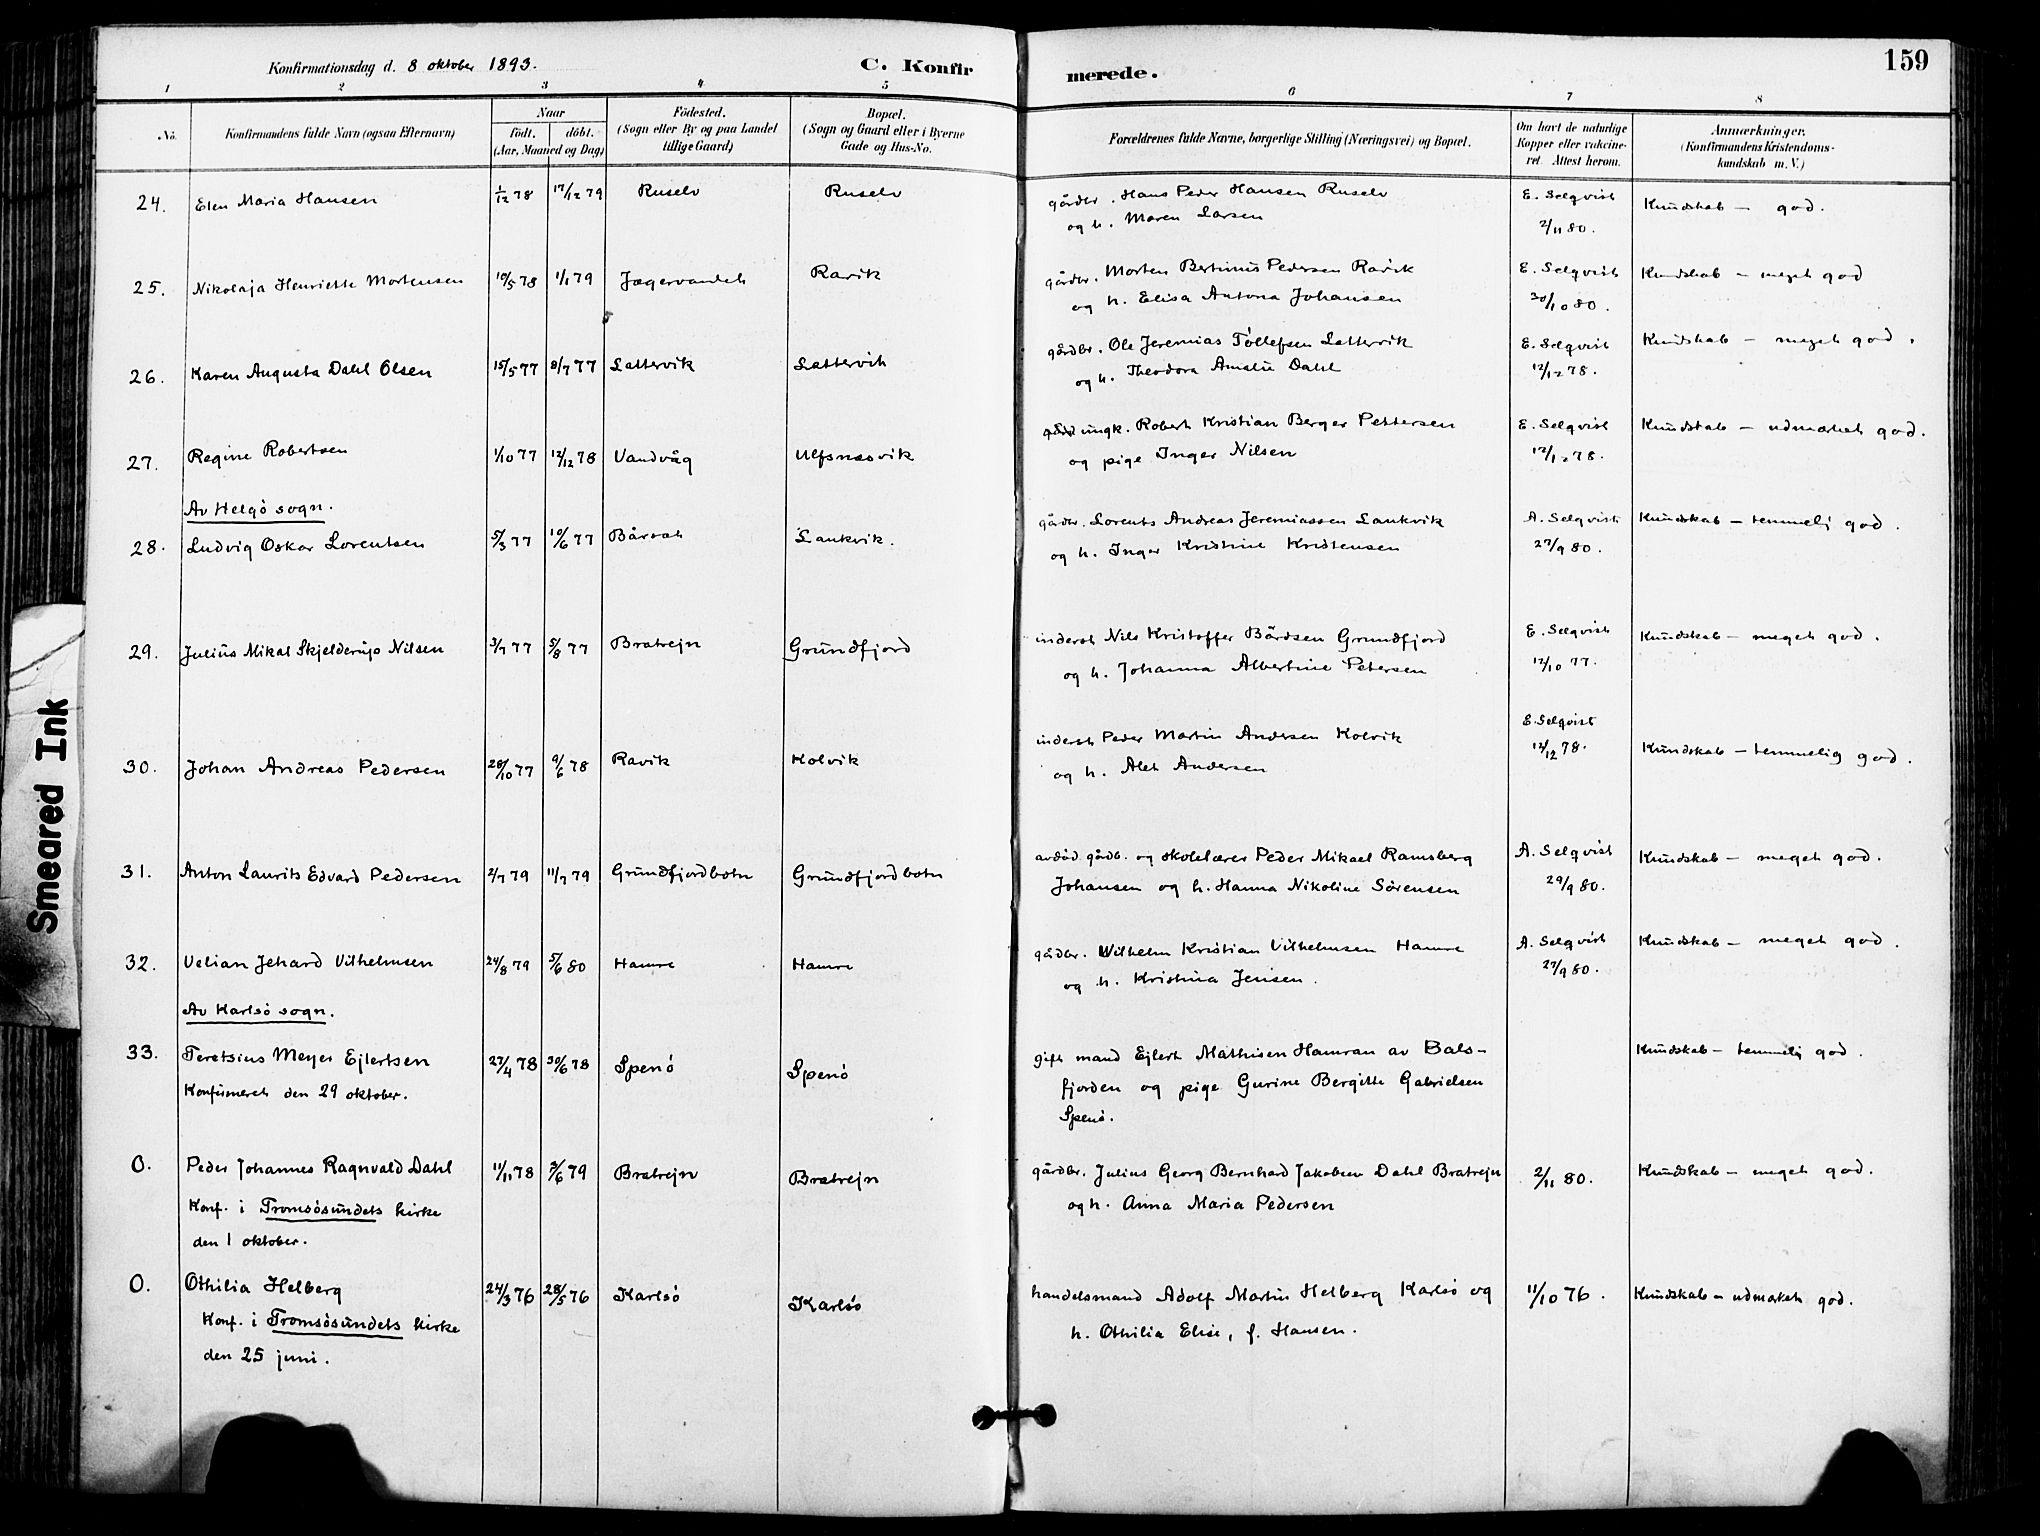 159
Konfirmationsdag d. 8 oktober 1893.
C. Konfir
merede.
1 2 3 4 5 6 7 8
No. Konfirmandens fulde Navn (ogsaa Efternavn) Naar født. døbt. (Aar, Maaned og Dag) Fødested. (Sogn eller By og paa Landet tillige Gaard) Bopæl. (Sogn og Gaard eller i Byerne Gade og Hus-No. Forældrenes fulde Navne, borgerlige Stilling (Næringsvei) og Bopæl. Om havt de naturlige Kopper eller vakcineret. Attest herom. Anmærkninger. (Konfirmandens Kristendomskundskab m. V.)
24. Elen Maria Hansen 1/12 78 17/12 79 Ruselv Ruselv gårdbr. Hans Peder Hansen Ruselv E. Selqvist Kundskab – god.
og h. Maren Larsen 2/11 80.
25. Nikolaja Henriette Mortensen 10/5 78 1/1 79 Jægervandet Ravik gårdbr. Morten Bertinus Pedersen Ravik E. Selqvist Kundskab – meget god
og h. Elisa Antona Johansen 30/10 80.
26. Karen Augusta Dahl Olsen 15/5 77 8/7 77 Lattervik Lattervik gårdbr. Ole Jeremias Tollefsen Lattervik E. Selqvist Kundskab – meget god.
og h. Theodora Amalie Dahl 12/12 78.
27. Regine Robertsen 1/10 77 12/12 78 Vandvåg Ulfsnesvik ungk. Robert Kristian Berger Pettersen E. Selqvist Kundskab – udmærket god.
og pige Inger Nilsen 12/12 78.
Av Helgö sogn.
28. Ludvig Oskar Lorentsen 5/3 77 10/6 77 Bårset Lankvik. gårdbr. Lorents Andreas Jeremiassen Lankvik A. Selqvist Kundskab – temmelig god.
og h. Inger Kristine Kristensen 27/9 80.
29. Julius Mikal Skjelderup Nilsen 3/7 77 5/8 77 Bratrejn Grundfjord inderst Nils Kristoffer Bårdsen Grundfjord E. Selqvist Kundskab – meget god.
og h. Johanna Albertine Petersen 12/10 77.
30. Johan Andreas Pedersen 28/10 77 9/6 78 Ravik Kolvik inderst Peder Martin Andersen Kolvik E. Selqvist Kundskab – temmelig god.
og h. Alet Andersen 12/12 78.
31. Anton Laurits Edvard Pedersen 2/7 79 11/7 79 Grundfjordbotn Grundfjordbotn avdöd gårdb. og skolelærer Peder Mikael Ramsberg A. Selqvist Kundskab – meget god.
Johansen og h. Hanna Nikoline Sörensen 29/9 80.
32. Velian Jehard Vilhelmsen 24/8 79 5/6 80 Hamre Hamre gårdbr. Wilhelm Kristian Vilhelmsen Hamre A. Selqvist Kundskab – meget god.
og h. Kristina Jensen. 27/9 80.
Av Karlsö sogn.
33. Teretsius Meyer Ejlertsen 27/4 78 30/6 78 Spenö Spenö gift mand Ejlert Mathisen Hamran av Bals- Kundskab – temmelig god.
Konfirmeret den 29 oktober. fjorden og pige Gurine Bergitte Gabrielsen
Spenö.
0. Peder Johannes Ragnvald Dahl 11/11 78 2/6 79 Bratrejn Bratrejn gårdbr. Julius Georg Bernhard Jakobsen Dahl Bratrejn 2/11 80. Kundskab – meget god.
Konf. i Tromsösundets kirke og h. Anna Maria Pedersen
den 1 oktober.
0. Othilia Helberg 24/3 76 28/5 76 Karlsö Karlsö handelsmand Adolf Martin Helberg Karlsö og 11/10 76. Kundskab – udmærket god.
Konf. i Tromsösundets kirke h. Othilia Elise, f. Hansen.
den 25 juni.
Smeared Ink